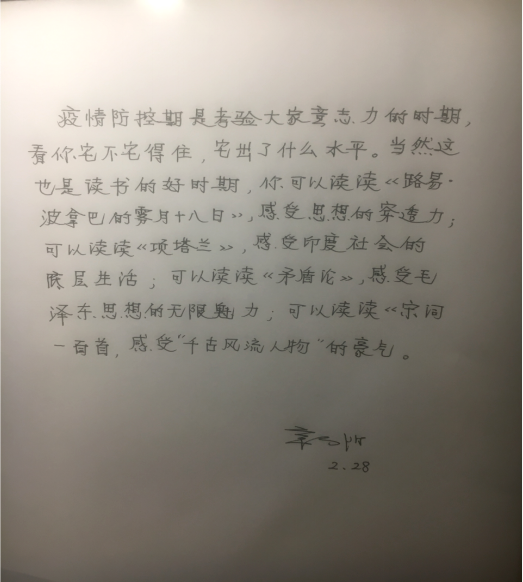 疫情防控期是考验大家意志力的时期,
看你宅不宅得住,宅出了什么水平。当然这
也是读书的好时期,你可以读读《路易·
波拿巴的雾月十八日》,感受思想的穿透力;
可以读读《项塔兰》,感受印度社会的
底层生活;可以读读《矛盾论》,感受毛
泽东思想的无限魅力;可以读读《宋词
一百首,感受"千古风流人物"的豪气。
2.28